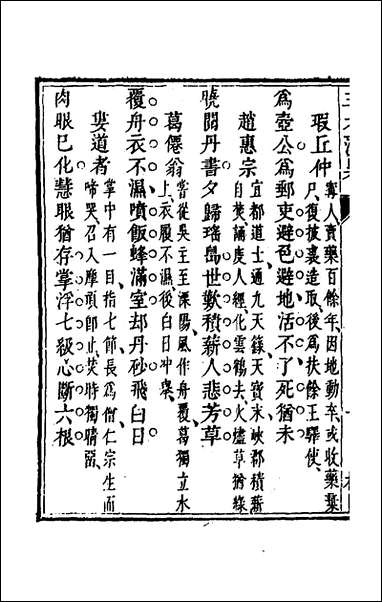 瑕丘仲
寗人賣藥百餘年、因地動卒、或收藥棄
尸、復披裘造取、後爲扶餘王驛使、
爲壺公爲郵吏避邑避地活不了死猶未
趙惠宗
宜都道士通九天籙天寶末峽郡積薪
自焚誦度人經、化雲鶴去、火燼草猶綠
曉閱丹書夕歸瑤島世歎積薪人悲芳草
葛僊翁
嘗從吳主至溧陽風作舟覆、葛獨立水
上、衣履不濕、後白日冲舉、
覆舟衣不濕噴飯蜂滿室却丹砂飛白日
婁道者
掌中有一目、指七節、長爲僧、仁宗生而
啼哭、召入摩頭卽止、焚時獨睛留、
肉眼已化慧眼猶存掌浮七級心斷六根